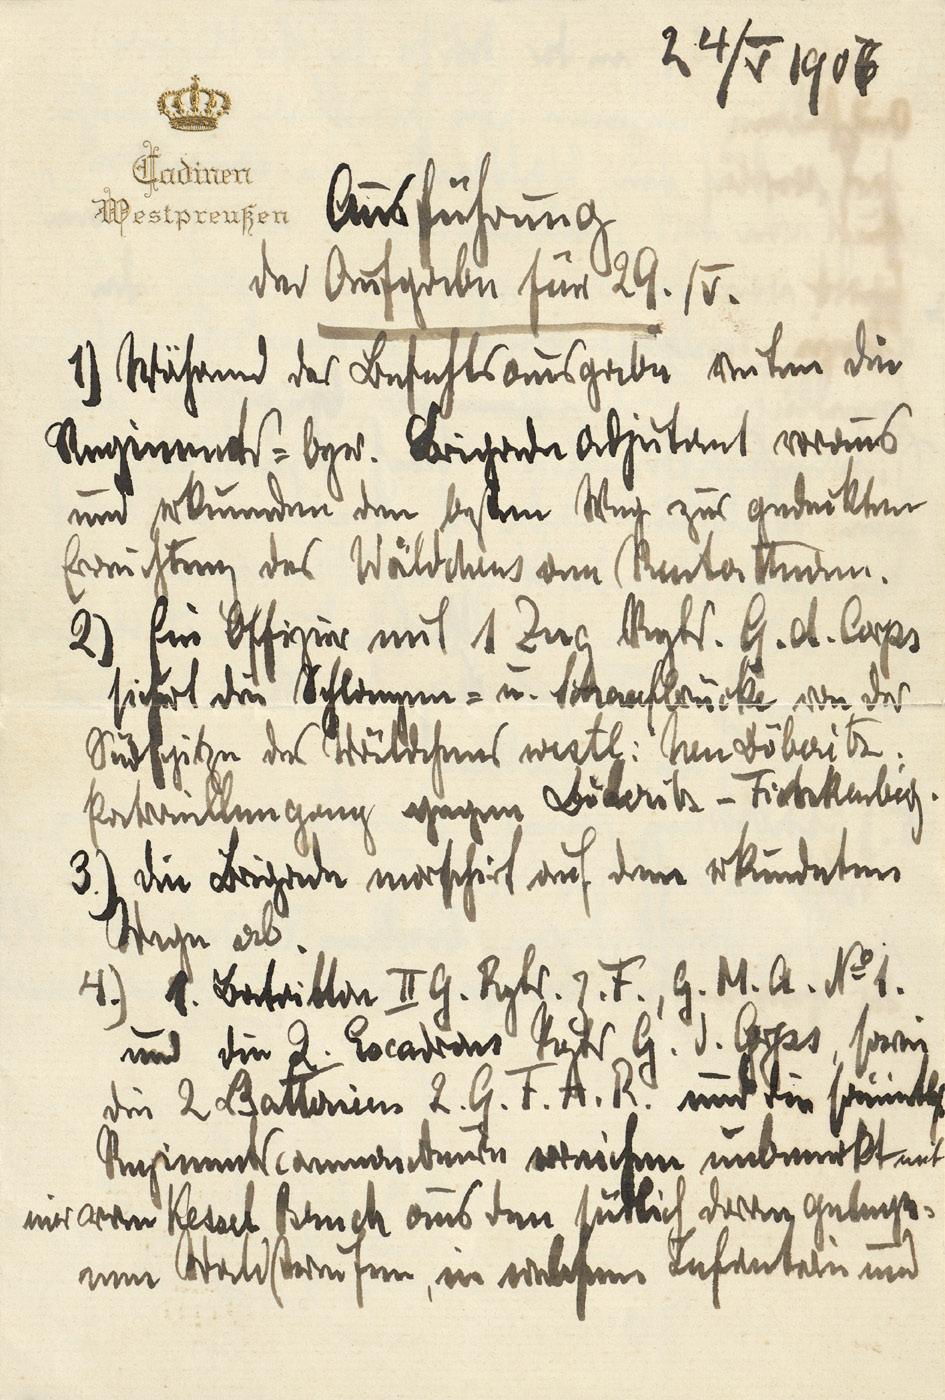 24/V 1906
Cadinen
Westpreußen
Ausführung
der Aufgabe für 29./V.
1) Während der Befehlsausgabe reiten die
Regiments= bzw. Brigade Adjutant voraus
und erkunden den besten Weg zur gedeckten
Erreichung des Wäldchens am
2) Ein Offizier mit 1 Zug Rgts. G. d. Corps
sichert die Schlangen= u. brücke von der
Südspitze des Wäldchens westl: Neu Döberitz.
Patrouillengang gegen Döberitz –
3.) die Brigade marschirt auf dem erkundeten
Wege ab.
4.) 1. Bataillon II G. Rgts. z. F., G. M. A. No 1.
und die 2. Escadrons Rgts G. d. Corps, sowie
die 2 Batterien 2. G. F. A. R. und die
Regimentscommandeure erreichen unbemerkt mit
Kessel aus den südlich daran gelege=
nen, in welchem Infanterie und